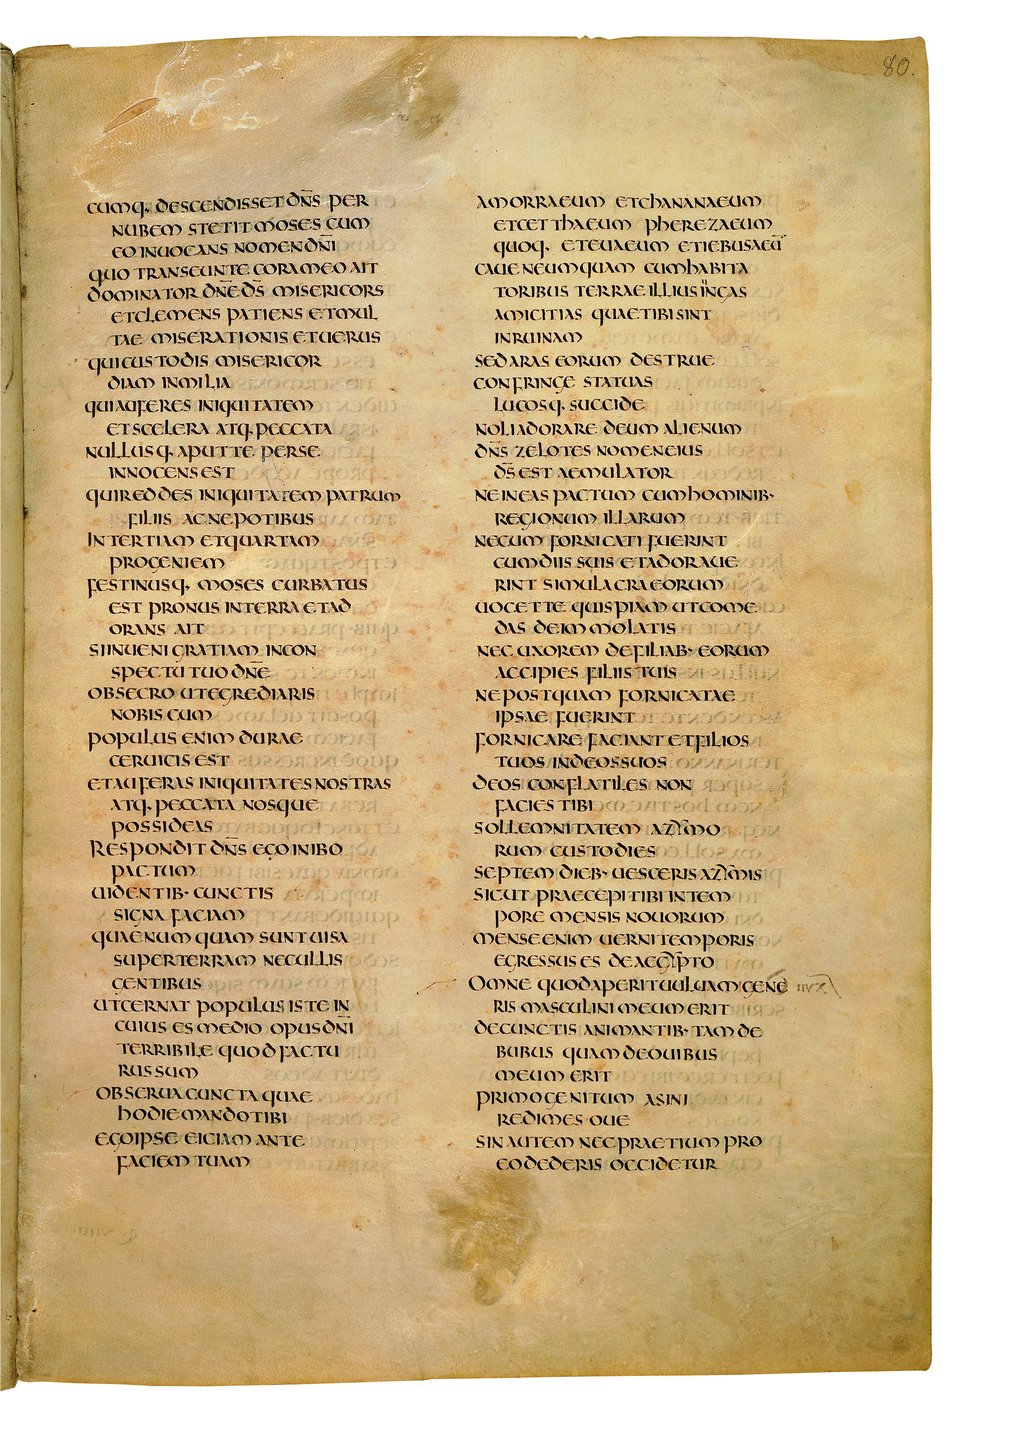 80.
CUMQ· DESCENDISSET DN̅S PER
NUBEM STETIT MOSES CUM
EO INUOCANS NOMEN DN̅I
QUO TRANSEUNTE CORAM EO AIT
DOMINATOR DN̅E DS̅ MISERICORS
ET CLEMENS PATIENS ET MUL
TAE MISERATIONIS ET UERUS
QUI CUSTODIS MISERICOR
DIAM IN MILIA
QUI AUFERES INIQUITATEM
ET SCELERA ATQ· PECCATA
NULLUSQ· APUT TE PER SE
INNOCENS EST
QUI REDDES INIQUITATEM PATRUM
FILIIS AC NEPOTIBUS
IN TERTIAM ET QUARTAM
PROGENIEM
FESTINUSQ· MOSES CURBATUS
EST PRONUS IN TERRA ET AD
ORANS AIT
SI INUENI GRATIAM IN CON
SPECTU TUO DN̅E
OBSECRO UT EGREDIARIS
NOBISCUM
POPULUS ENIM DURAE
CERUICIS EST
ET AUFERAS INIQUITATES NOSTRAS
ATQ· PECCATA NOSQUE
POSSIDEAS
RESPONDIT DN̅S EGO INIBO
PACTUM
UIDENTIB· CUNCTIS
SIGNA FACIAM
QUAE NUMQUAM SUNT UISA
SUPER TERRAM NEC ULLIS
GENTIBUS
UT CERNAT POPULUS ISTE IN
CUIUS ES MEDIO OPUS DN̅I
TERRIBILE QUOD FACTU
RUS SUM
OBSERUA CUNCTA QUAE
HODIE MANDO TIBI
EGO IPSE EICIAM ANTE
FACIEM TUAM
AMORRAEUM ET CHANANAEUM
ET CETTHAEUM PHEREZAEUM
QUOQ· ET EUAEUM ET IEBUSAEU̅
CAUE NE UMQUAM CUM HABITA
TORIBUS TERRAE ILLIUS IUNGAS
AMICITIAS QUAE TIBI SINT
IN RUINAM
SED ARAS EORUM DESTRUE
CONFRINGE STATUAS
LUCOSQ· SUCCIDE
NOLI ADORARE DEUM ALIENUM
DN̅S ZELOTES NOMEN EIUS
DS̅ EST AEMULATOR
NE INEAS PACTUM CUM HOMINIB·
REGIONUM ILLARUM
NE CUM FORNICATI FUERINT
CUM DIIS SUIS ET ADORAUE
RINT SIMULACRA EORUM
UOCET TE QUISPIAM UT COME
DAS DE IMMOLATIS
NEC UXOREM DE FILIAB· EORUM
ACCIPIES FILIIS TUIS
NE POSTQUAM FORNICATAE
IPSAE FUERINT
FORNICARE FACIANT ET FILIOS
TUOS IN DEOS SUOS
DEOS CONFLATILES NON
FACIES TIBI
SOLLEMNITATEM AZYMO
RUM CUSTODIES
SEPTEM DIEB· UESCERIS AZYMIS
SICUT PRAECEPI TIBI IN TEM
PORE MENSIS NOUORUM
MENSE ENIM UERNI TEMPORIS
EGRESSUS ES DE AEGYPTO
OMNE QUOD APERIT UULUAM GENE
RIS MASCULINI MEUM ERIT
DE CUNCTIS ANIMANTIB· TAM DE
BUBUS QUAM DE OUIBUS
MEUM ERIT
PRIMOGENITUM ASINI
REDIMES OUE
SIN AUTEM NEC PRAETIUM PRO
EO DEDERIS OCCIDETUR